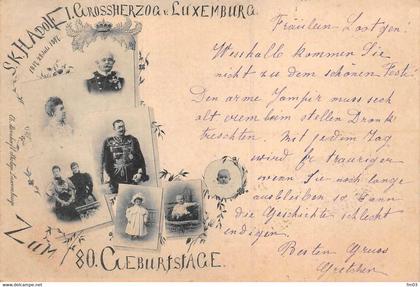 S.K.H. ADOLF I. GROSSHERZOG v. LUXEMBURG.
1817 24 Juli 1897
Zum 80. GEBURTSTAGE.
Fräulein Lostgen!
Wesshalb kommen Sie
nicht zu dem schönen Fest!
Den arme Jampir muss sech
alt erem beim stellen Dronk
treschten. Mit jedem Tag
wird Er trauriger
wenn Sie noch lange
ausbleiben so kann
die Geschichte schlecht
endigen
Besten Gruss
Gretchen
fm03